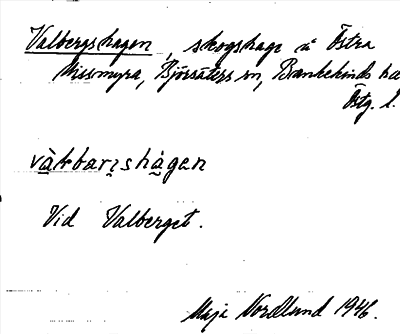 Valbergshagen, skogshage i Östra
Missmyra, Björsäters sn, Bankekinds hd
Östg. l.
Vid Valberget.
Maja Nordlund 1946.